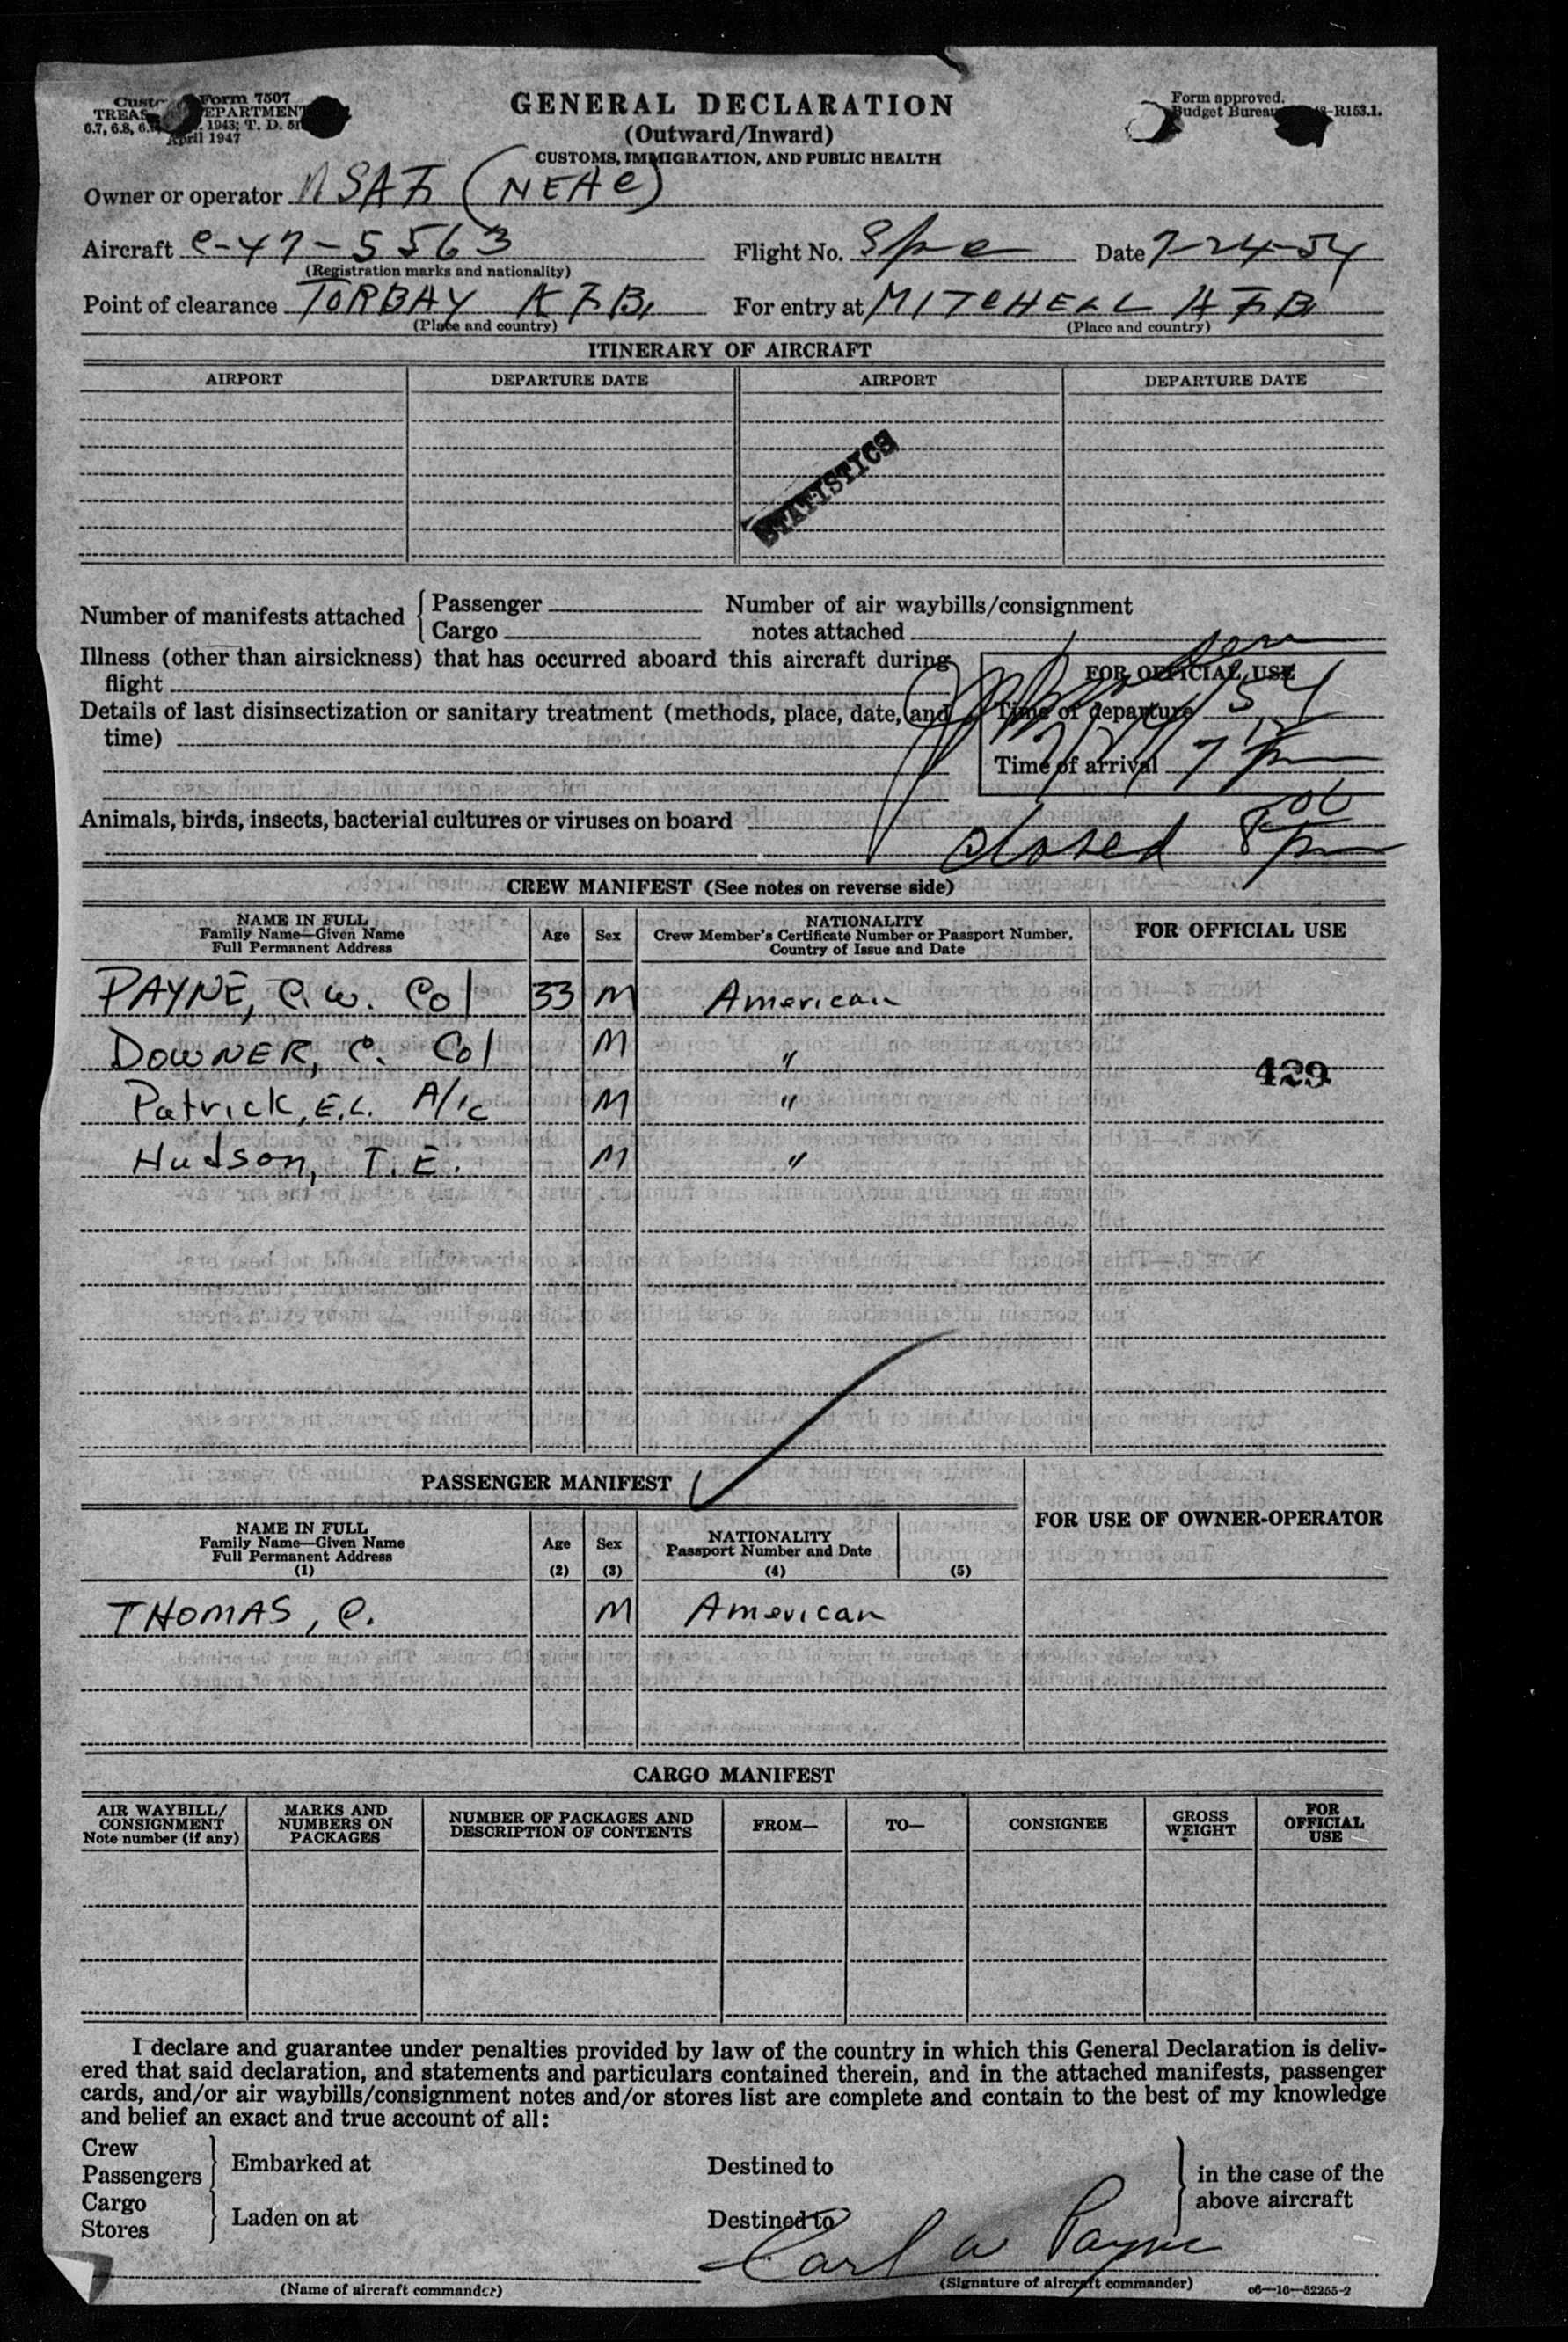 Form 7507
TREAS EPARTMENT
6.7, 6.8, 6. 1943; T. D. 51
April 1947
GENERAL DECLARATION
(Outward/Inward)
CUSTOMS, IMMIGRATION, AND PUBLIC HEALTH
Form approved.
Budget Bureau -R153.1.
Owner or operator USAF (NEAC)
Aircraft C-47-5563 Flight No. Date 7-24-54
(Registration marks and nationality)
Point of clearance TORBAY AFB, For entry at MITCHELL AFB
(Place and country) (Place and country)
ITINERARY OF AIRCRAFT
AIRPORT DEPARTURE DATE AIRPORT DEPARTURE DATE
STATISTICS
Number of manifests attached { Passenger Number of air waybills/consignment
Cargo notes attached
Illness (other than airsickness) that has occurred aboard this aircraft during
flight
FOR OFFICIAL USE
Details of last disinsectization or sanitary treatment (methods, place, date, and
time)
Time of departure
7/24/54
Time of arrival 7 15 pm
Animals, birds, insects, bacterial cultures or viruses on board
closed 8 00 pm
CREW MANIFEST (See notes on reverse side)
NAME IN FULL
Family Name—Given Name
Full Permanent Address
Age Sex
NATIONALITY
Crew Member's Certificate Number or Passport Number,
Country of Issue and Date
FOR OFFICIAL USE
PAYNE, C.W. Col 33 M American
DOWNER, C. Col M "
429
Patrick, E.L. A/1c M "
Hudson, T. E. M "
PASSENGER MANIFEST
FOR USE OF OWNER-OPERATOR
NAME IN FULL
Family Name—Given Name
Full Permanent Address
(1)
Age
(2)
Sex
(3)
NATIONALITY
Passport Number and Date
(4) (5)
THOMAS, C. M American
CARGO MANIFEST
AIR WAYBILL/
CONSIGNMENT
Note number (if any)
MARKS AND
NUMBERS ON
PACKAGES
NUMBER OF PACKAGES AND
DESCRIPTION OF CONTENTS
FROM— TO— CONSIGNEE
GROSS
WEIGHT
FOR
OFFICIAL
USE
I declare and guarantee under penalties provided by law of the country in which this General Declaration is deliv-
ered that said declaration, and statements and particulars contained therein, and in the attached manifests, passenger
cards, and/or air waybills/consignment notes and/or stores list are complete and contain to the best of my knowledge
and belief an exact and true account of all:
Crew
Passengers } Embarked at Destined to
Cargo
Stores } Laden on at Destined to
} in the case of the
above aircraft
Carl W Payne
(Name of aircraft commander) (Signature of aircraft commander) c6—16—52255-2